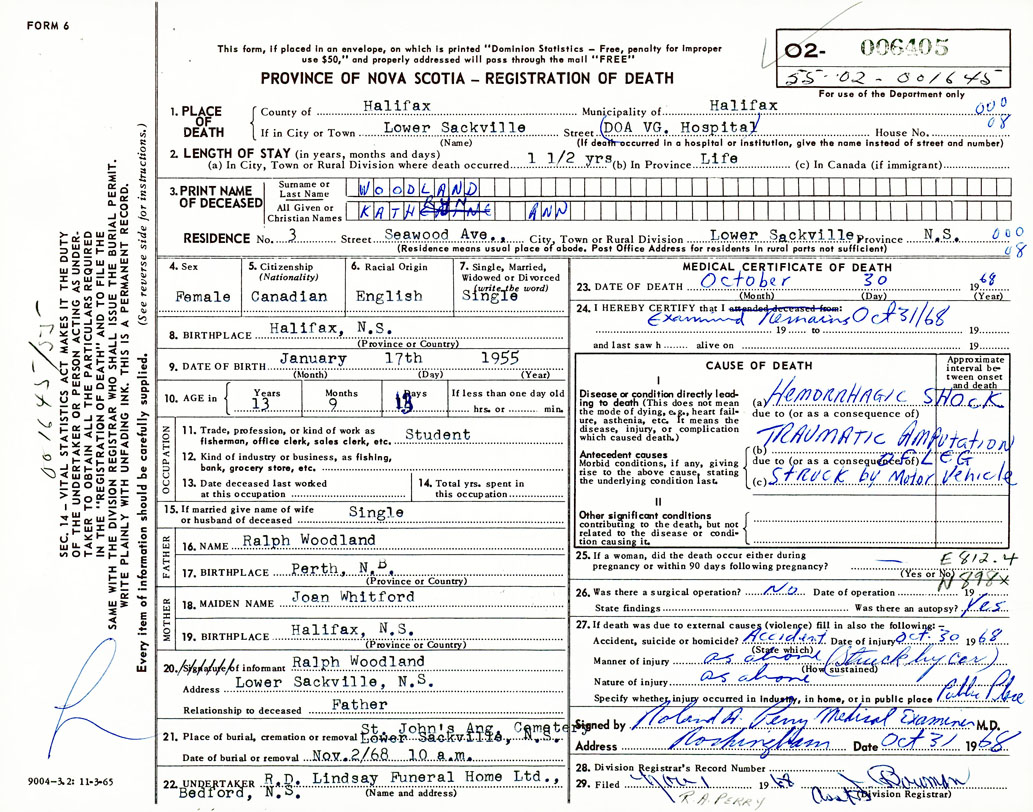 FORM 6
This form, if placed in an envelope, on which is printed "Dominion Statistics – Free, penalty for improper
use $50," and properly addressed will pass through the mail "FREE"
PROVINCE OF NOVA SCOTIA – REGISTRATION OF DEATH
02- 006405
55-02-001645
For use of the Department only
1. PLACE OF DEATH
County of Halifax Municipality of Halifax 000
If in City or Town Lower Sackville Street (DOA VG. Hospital) House No. 08
(Name) (If death occurred in a hospital or institution, give the name instead of street and number)
2. LENGTH OF STAY (in years, months and days)
(a) In City, Town or Rural Division where death occurred 1 1/2 yrs (b) In Province Life (c) In Canada (if immigrant)
3. PRINT NAME OF DECEASED
Surname or Last Name WOODLAND
All Given or Christian Names KATHRYN ANN
RESIDENCE No. 3 Street Seawood Ave., City, Town or Rural Division Lower Sackville, Province N.S. 000
(Residence means usual place of abode. Post Office Address for residents in rural parts not sufficient) 08
4. Sex
Female
5. Citizenship
(Nationality)
Canadian
6. Racial Origin
English
7. Single, Married,
Widowed or Divorced
(write the word)
Single
8. BIRTHPLACE Halifax, N.S.
(Province or Country)
9. DATE OF BIRTH January 17th 1955
(Month) (Day) (Year)
10. AGE in
Years Months Days If less than one day old
13 9 13 hrs. or min.
OCCUPATION
11. Trade, profession, or kind of work as
fisherman, office clerk, sales clerk, etc. Student
12. Kind of industry or business, as fishing,
bank, grocery store, etc.
13. Date deceased last worked
at this occupation
14. Total yrs. spent in
this occupation
15. If married give name of wife
or husband of deceased Single
FATHER
16. NAME Ralph Woodland
17. BIRTHPLACE Perth, N.B.
(Province or Country)
MOTHER
18. MAIDEN NAME Joan Whitford
19. BIRTHPLACE Halifax, N.S.
(Province or Country)
20. Signature of informant Ralph Woodland
Address Lower Sackville, N.S.
Relationship to deceased Father
21. Place of burial, cremation or removal St. John's Ang. Cemetery
Lower Sackville, N.S.
Date of burial or removal Nov.2/68 10 a.m.
22. UNDERTAKER R.D. Lindsay Funeral Home Ltd.,
Bedford, N.S. (Name and address)
MEDICAL CERTIFICATE OF DEATH
23. DATE OF DEATH October 30 1968
(Month) (Day) (Year)
24. I HEREBY CERTIFY that I attended deceased from:
Examined Remains Oct 31/68
19 to 19
and last saw h alive on 19
CAUSE OF DEATH
Approximate interval between onset and death
I
Disease or condition directly leading to death (This does not mean the mode of dying, e.g., heart failure, asthenia, etc. It means the disease, injury, or complication which caused death.)
(a) HEMORRHAGIC SHOCK
due to (or as a consequence of)
TRAUMATIC AMPUTATION
Antecedent causes
Morbid conditions, if any, giving rise to the above cause, stating the underlying condition last.
(b) OF LEG
due to (or as a consequence of)
(c) STRUCK by Motor Vehicle
II
Other significant conditions
contributing to the death, but not
related to the disease or condition causing it.
25. If a woman, did the death occur either during
pregnancy or within 90 days following pregnancy? — E812.4
(Yes or No) N898x
26. Was there a surgical operation? No Date of operation 19
State findings Was there an autopsy? Yes
27. If death was due to external causes (violence) fill in also the following:–
Accident, suicide or homicide? Accident Date of injury Oct. 30 1968
(State which)
Manner of injury as above (struck by car)
(How sustained)
Nature of injury as above
Specify whether injury occurred in Industry, in home, or in public place Public Place
Signed by Roland A. Perry Medical Examiner M.D.
Address Rockingham Date Oct 31 1968
28. Division Registrar's Record Number
29. Filed Nov 1 1968
(Division Registrar)
R.A. PERRY
SEC. 14 – VITAL STATISTICS ACT MAKES IT THE DUTY
OF THE UNDERTAKER OR PERSON ACTING AS UNDER-
TAKER TO OBTAIN ALL THE PARTICULARS REQUIRED
IN THE "REGISTRATION OF DEATH" AND TO FILE THE
SAME WITH THE DIVISION REGISTRAR WHO SHALL ISSUE THE BURIAL PERMIT.
WRITE PLAINLY WITH UNFADING INK. THIS IS A PERMANENT RECORD.
Every item of information should be carefully supplied. (See reverse side for instructions.)
001645/55
9004-3.2: 11-3-65